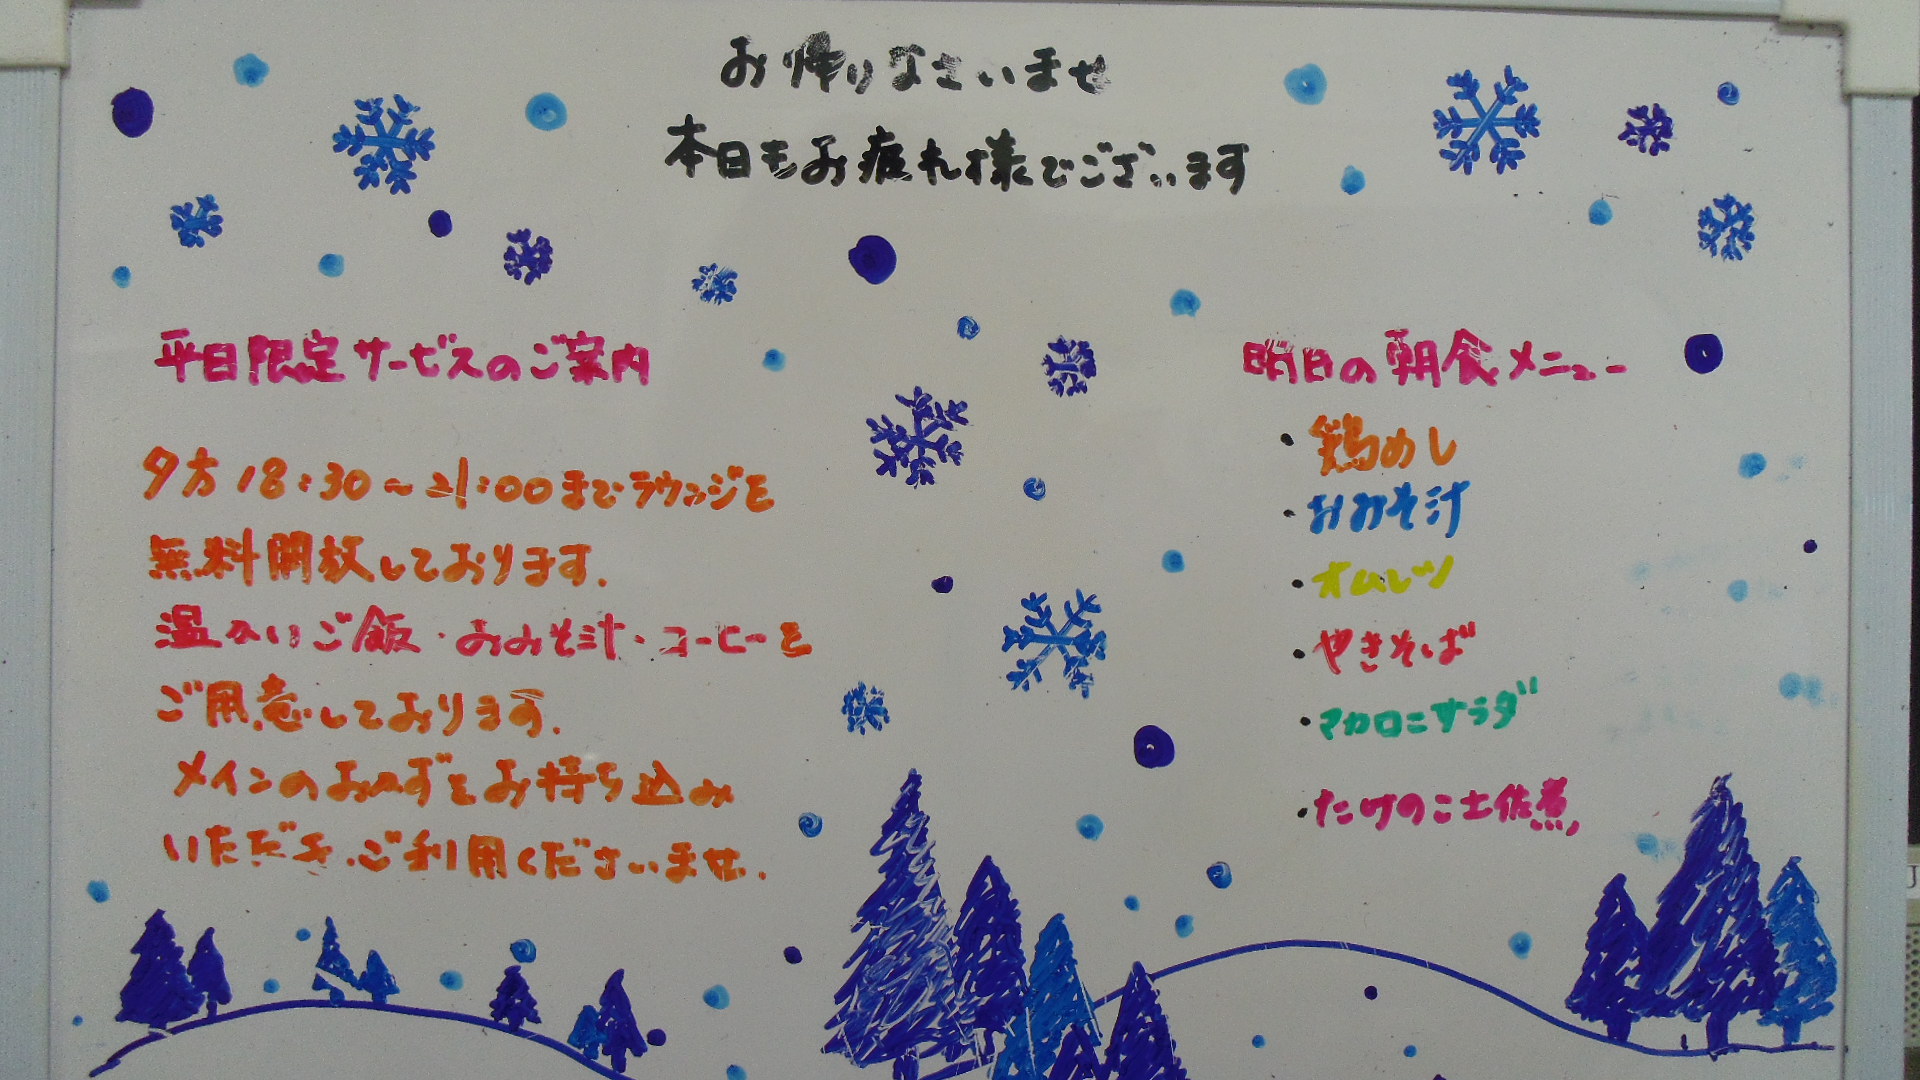 お帰りなさいませ
本日もお疲れ様でございます
平日限定サービスのご案内
夕方18:30~21:00までラウンジを
無料開放しております.
温かいご飯・おみそ汁・コーヒーを
ご用意しております.
メインのおかずをお持ち込み
いただき、ご利用くださいませ.
明日の朝食メニュー
・鶏めし
・おみそ汁
・オムレツ
・やきそば
・マカロニサラダ
・たけのこ土佐煮